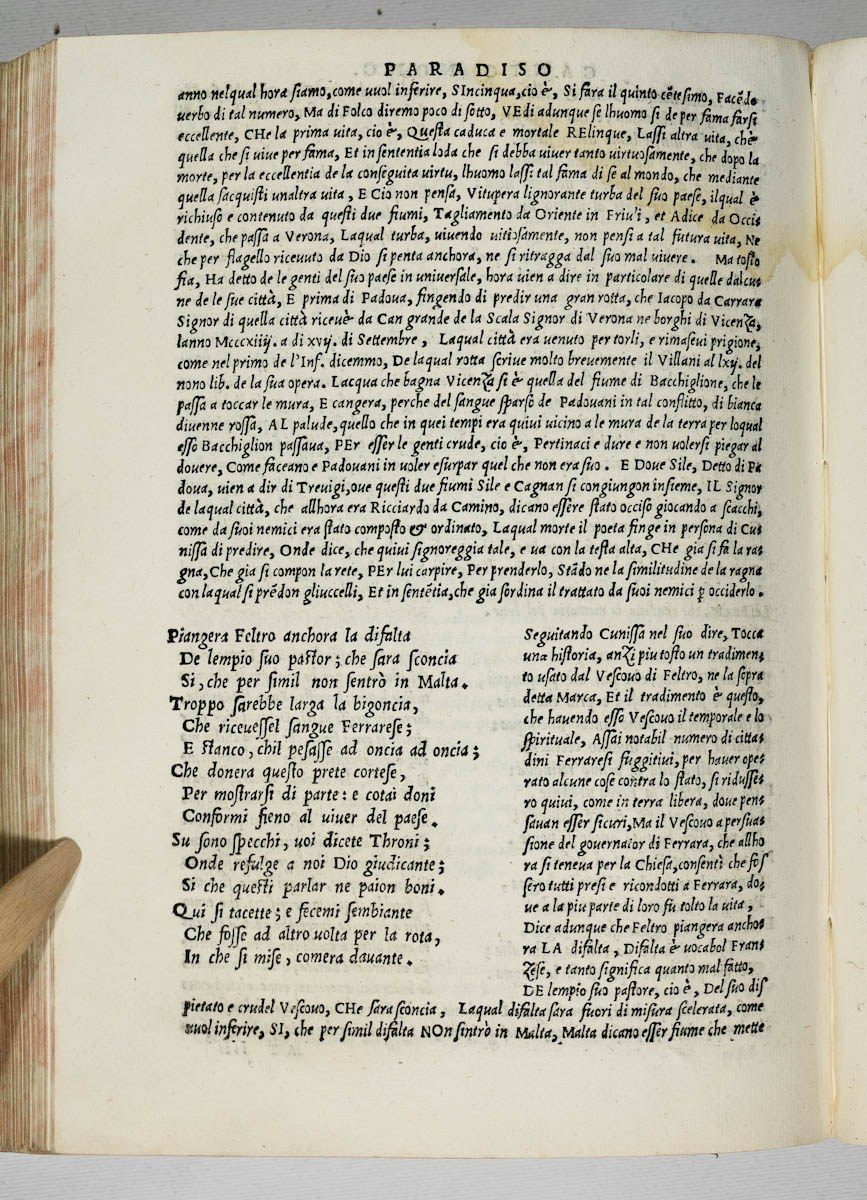 PARADISO
anno nelqual hora siamo, come vuol inferire, SIncinqua, cio è, Si fara il quinto cẽtesimo, Facẽdo
verbo di tal numero, Ma di Folco diremo poco di sotto, VEdi adunque se lhuomo si de per fama farsi
eccellente, CHe la prima vita, cio è, Questa caduca e mortale RElinque, Lassi altra vita, chè
quella che si viue per fama, Et in sententia loda che si debba viuer tanto virtuosamente, che dopo la
morte, per la eccellentia de la conseguita virtu, lhuomo lassi tal fama di se al mondo, che mediante
quella sacquisti unaltra vita, E Cio non pensa, Vitupera lignorante turba del suo paese, ilqual è
richiuso e contenuto da questi due fiumi, Tagliamento da Oriente in Friuli, et Adice da Occi-
dente, che passa a Verona, Laqual turba, viuendo uitiosamente, non pensi a tal futura vita, Ne
che per flagello riceuuto da Dio si penta anchora, ne si ritragga dal suo mal viuere. Ma tosto
fia, Ha detto de le genti del suo paese in universale, hora vien a dire in particolare di quelle dalcu-
ne de le sue città, E prima di Padoua, fingendo di predir una gran rotta, che Iacopo da Carrara
Signor di quella città riceuè da Can grande de la Scala Signor di Verona ne borghi di Vicenza,
lanno Mcccxiiij. a di xvij. di Settembre, Laqual città era venuto per torli, e rimaseui prigione,
come nel primo de l'Inf. dicemmo, De laqual rotta scriue molto breuemente il Villani al lxij. del
nono lib. de la sua opera. Lacqua che bagna Vicenza si è quella del fiume di Bacchiglione, che le
passa a toccar le mura, E cangera, perche del sangue sparso de Padouani in tal conflitto, di bianca
diuenne rossa, AL palude, quello che in quei tempi era quiui uicino a le mura de la terra per loqual
esso Bacchiglion passaua, PEr esser le genti crude, cio è, Pertinaci e dure e non volersi piegar al
douere, Come faceano e Padouani in voler esurpar quel che non era suo. E Doue Sile, Detto di Pa
doua, vien a dir di Trevigi, oue questi due fiumi Sile e Cagnan si congiungon insieme, IL Signor
de laqual città, che allhora era Ricciardo da Camino, dicano essere stato occiso giocando a scacchi,
come da suoi nemici era stato composto & ordinato, Laqual morte il poeta finge in persona di Cu-
nissa di predire, Onde dice, che quiui signoreggia tale, e va con la testa alta, CHe gia si fa la ra-
gna, Che gia si compon la rete, PEr lui carpire, Per prenderlo, Stãdo ne la similitudine de la ragna
con laqual si prẽdon gliuccelli, Et in sentẽtia, che gia sordina il trattato da suoi nemici ꝑ occiderlo.
Piangera Feltro anchora la difalta
De lempio suo pastor; che sara sconcia
Si, che per simil non sentrò in Malta.
Troppo sarebbe larga la bigoncia,
Che riceuessel sangue Ferrarese;
E stanco, chil pesasse ad oncia ad oncia;
Che donera questo prete cortese,
Per mostrarsi di parte: e cotai doni
Conformi fieno al viuer del paese.
Su sono specchi, voi dicete Throni;
Onde refulge a noi Dio giudicante;
Si che questi parlar ne paion boni.
Qui si tacette; e fecemi sembiante
Che fosse ad altro uolta per la rota,
In che si mise, comera dauante.
Seguitando Cunissa nel suo dire, Tocca
una historia, anzi piu tosto un tradimen-
to usato dal Vescouo di Feltro, ne la sopra
detta Marca, Et il tradimento è questo,
che hauendo esso Vescouo il temporale e lo
spirituale, Assai notabil numero di citta-
dini Ferraresi fuggitiui, per hauer ope-
rato alcune cose contra lo stato, si ridusse-
ro quiui, come in terra libera, doue pen-
sauan esser sicuri, Ma il Vescouo a persua-
sione del gouernator di Ferrara, che allho
ra si teneua per la Chiesa, consentì che fos
sero tutti presi e ricondotti a Ferrara, do-
ue a la piu parte di loro fu tolto la vita,
Dice adunque che Feltro piangera ancho-
ra LA difalta, Difalta è vocabol Fran-
zese, e tanto significa quanto mal fatto,
DE lempio suo pastore, cio è, Del suo dis
pietato e crudel Vescouo, CHe sara sconcia, Laqual difalta sara fuori di misura scelerata, come
vuol inferire, SI, che per simil difalta NOn sintrò in Malta, Malta dicano esser fiume che mette